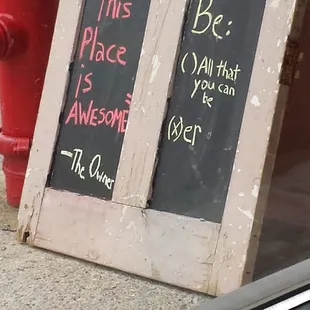 This
Place
is
AWESOME
-The Owner
Be:
( ) All that
you can
be
(x) er